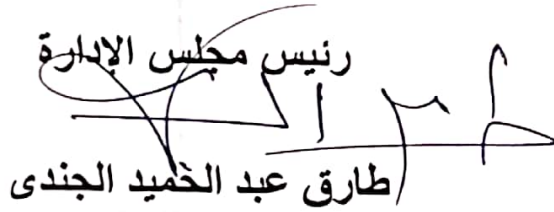 رئيس مجلس الإدارة
طارق عبد الحميد الجندى